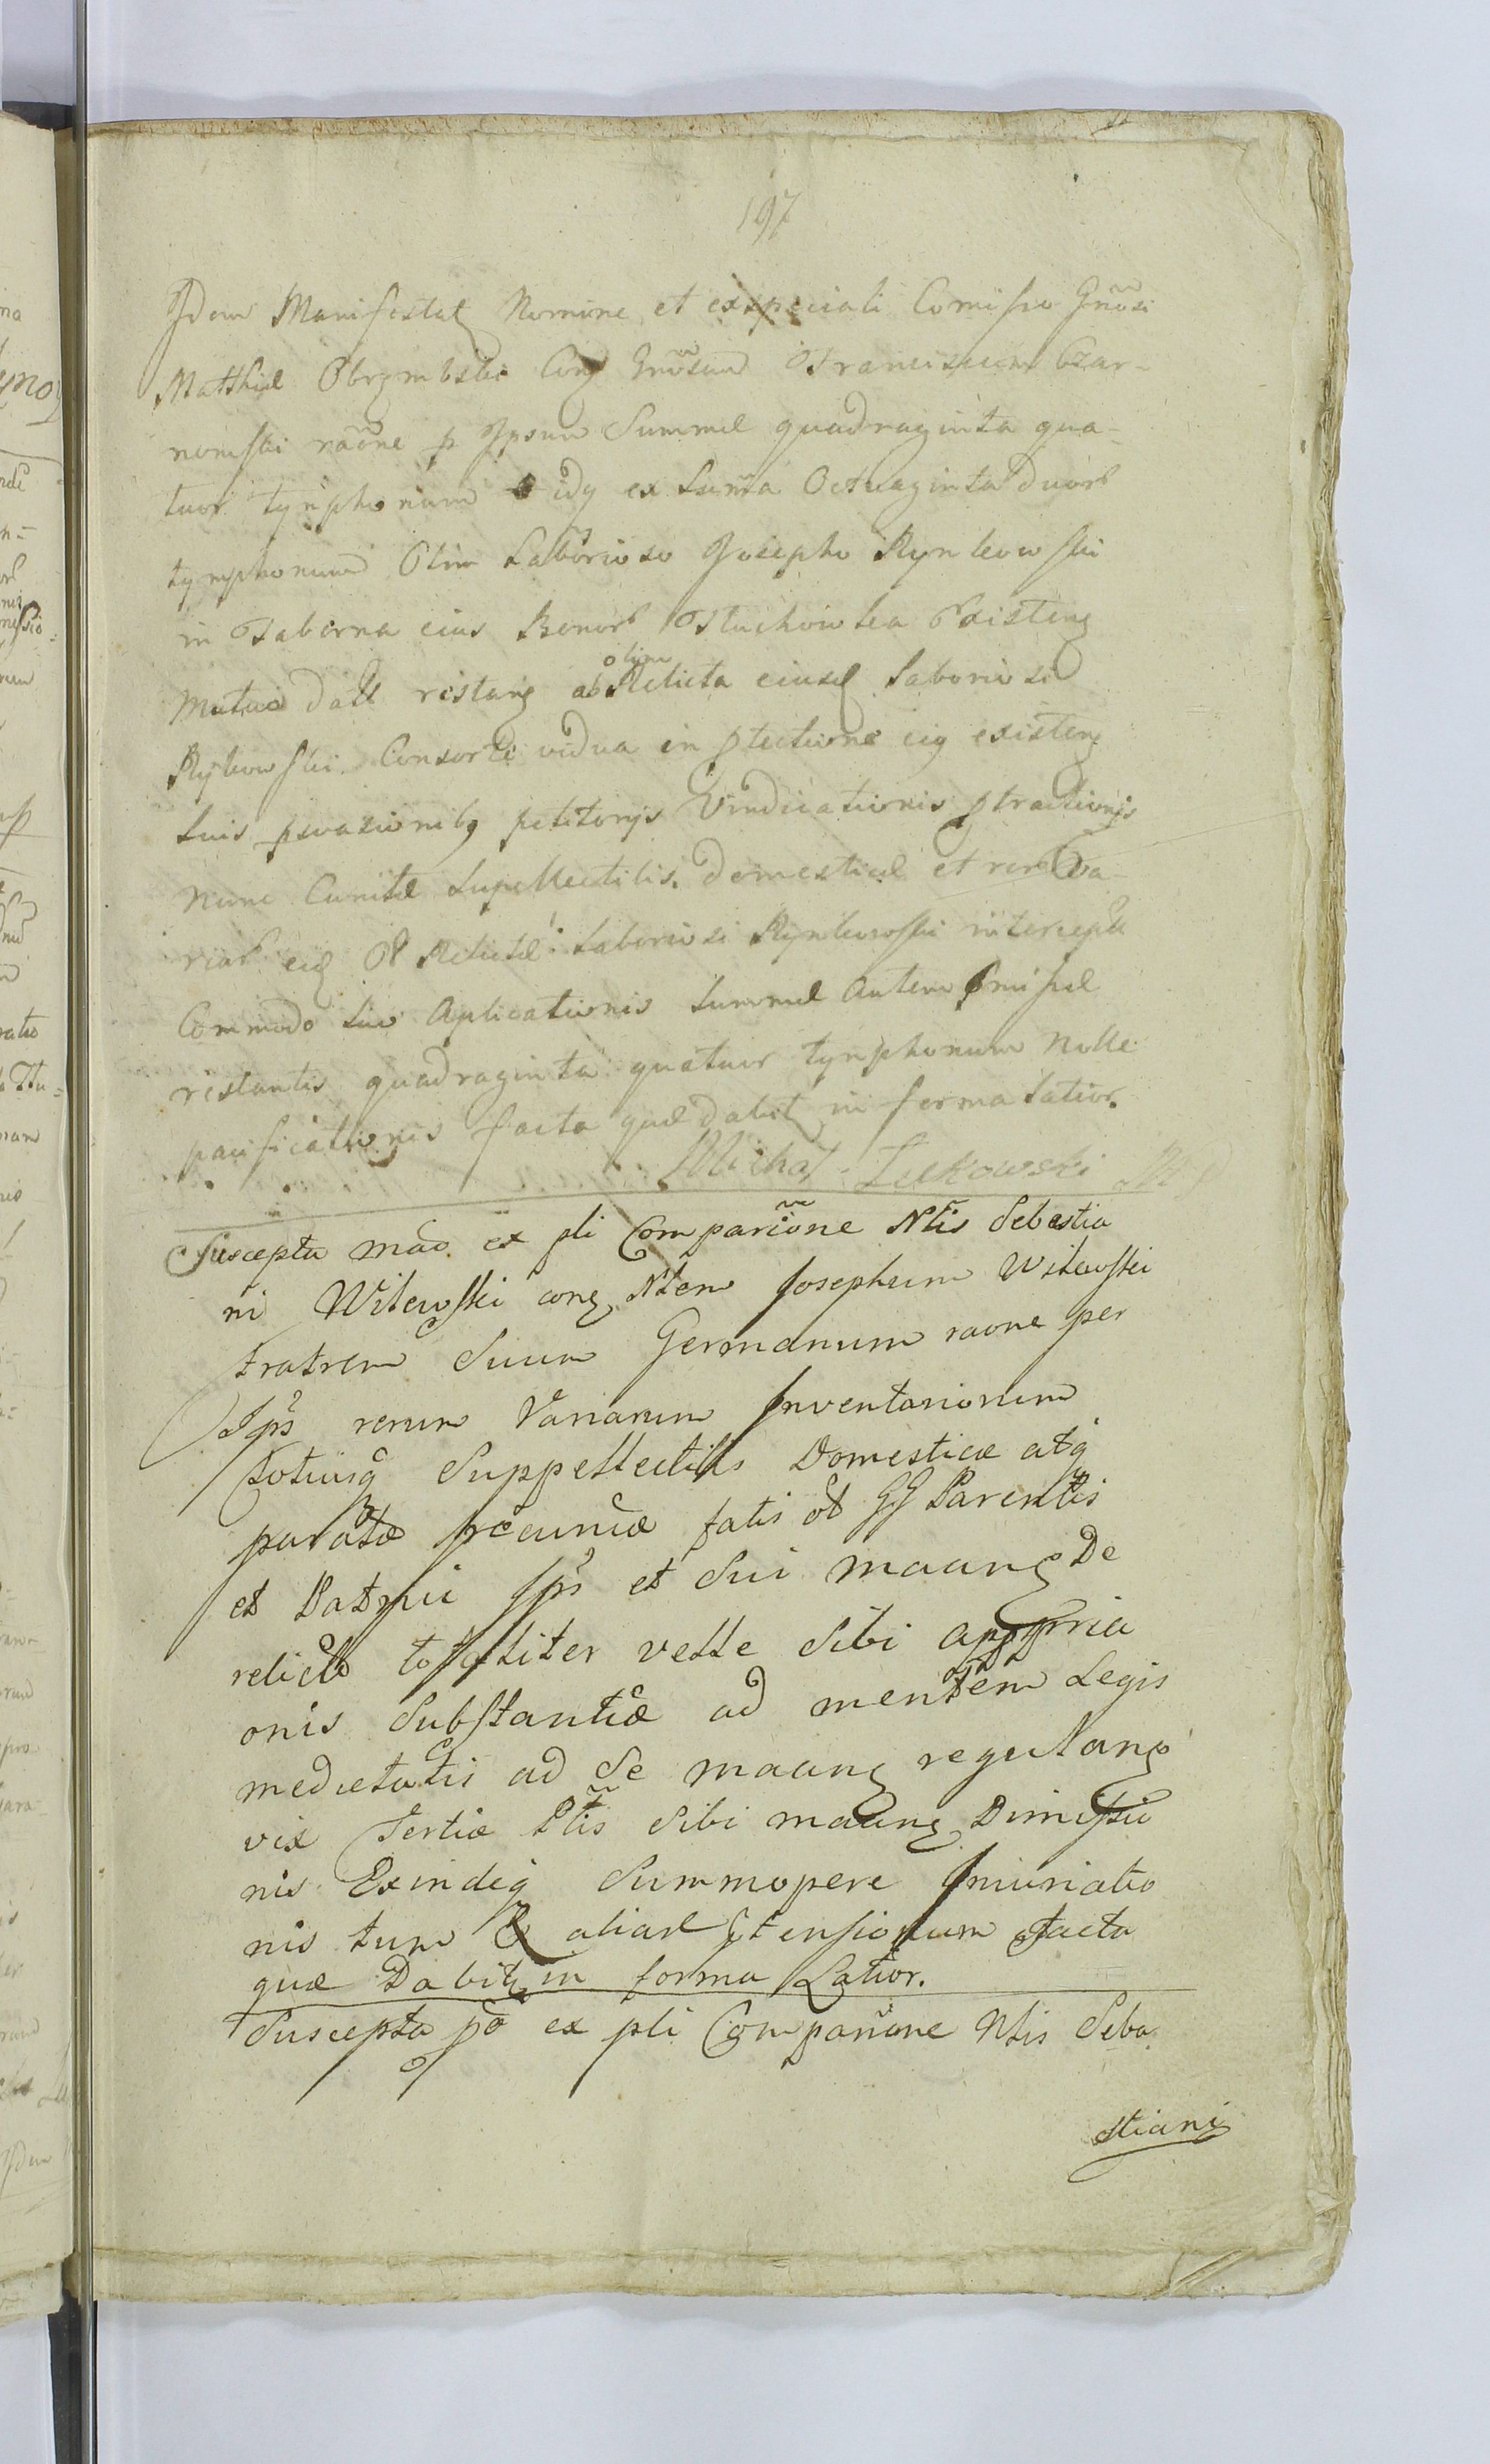 197
Idem Manifestat Nomine et ex speciali Comisso Gnosi
Matthiæ Obrembski Cong Gnosum Franciscum Czar-
nomski raone p Ipsum Summæ quadraginta qua-
tuor tynphonum idq ex Suma Octuaginta duor
tymphonum Olim Laborioso Josepho Rynkowski
in Taberna eius Bonor Stuchowka Existeng
Mutuo dat restang ab olim Relicta eiusd Laboriosi
Rykowski Consorte vidua in ptectione eig existeng
suis psuasionibq petitorijs Vindicationis ptractionis
nunc Cunctæ Supellectilis Domesticæ et rer va-
riar eid Relictæ Laboriosi Rynkowski intercept
Commodo suo Aplicationis Summæ Autem Omissæ
restantis quadraginta quatuor tynphonum Nolle
pacificationis facta quæ dabit in forma Latior.
Michał Lukowski
Suscepta mao ex pli Comparione Nlis Sebestia
ni Witewski cong Nlem Josephum Witewski
Fratrem Suum Germanum raone per
Ips rerum Variarum Inventariorum
totiusq Suppellectilis Domesticæ atq
paratæ pecuniæ fatis ol GG Parentis
et Patrui Ips et Sui maang De
relicto totaliter velle Sibi appropria
onis Substantiæ ad mentem Legis
medietatis ad Se maang regulang
vix Tertiæ Ptis Sibi maang Dimissio
nis Exindeq Summopere Iniuriatio
nis tum & aliar ptensionum facta
quæ Dabit in forma Latior.
Suscepta po ex pli Comparione Nlis Seba
stiani